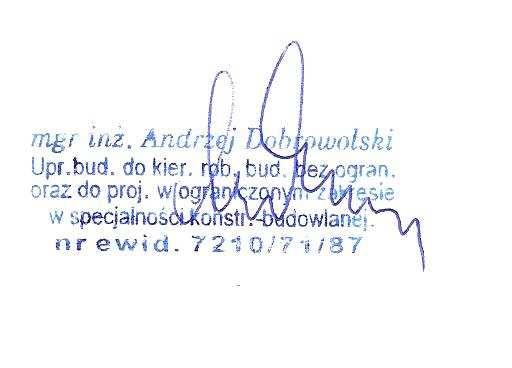 mgr inż. Andrzej Dobrowolski
Upr.bud. do kier. rob. bud. bez ogran.
oraz do proj. w ograniczonym zakresie
w specjalności konstr.-budowlanej.
nr ewid. 7210/71/87